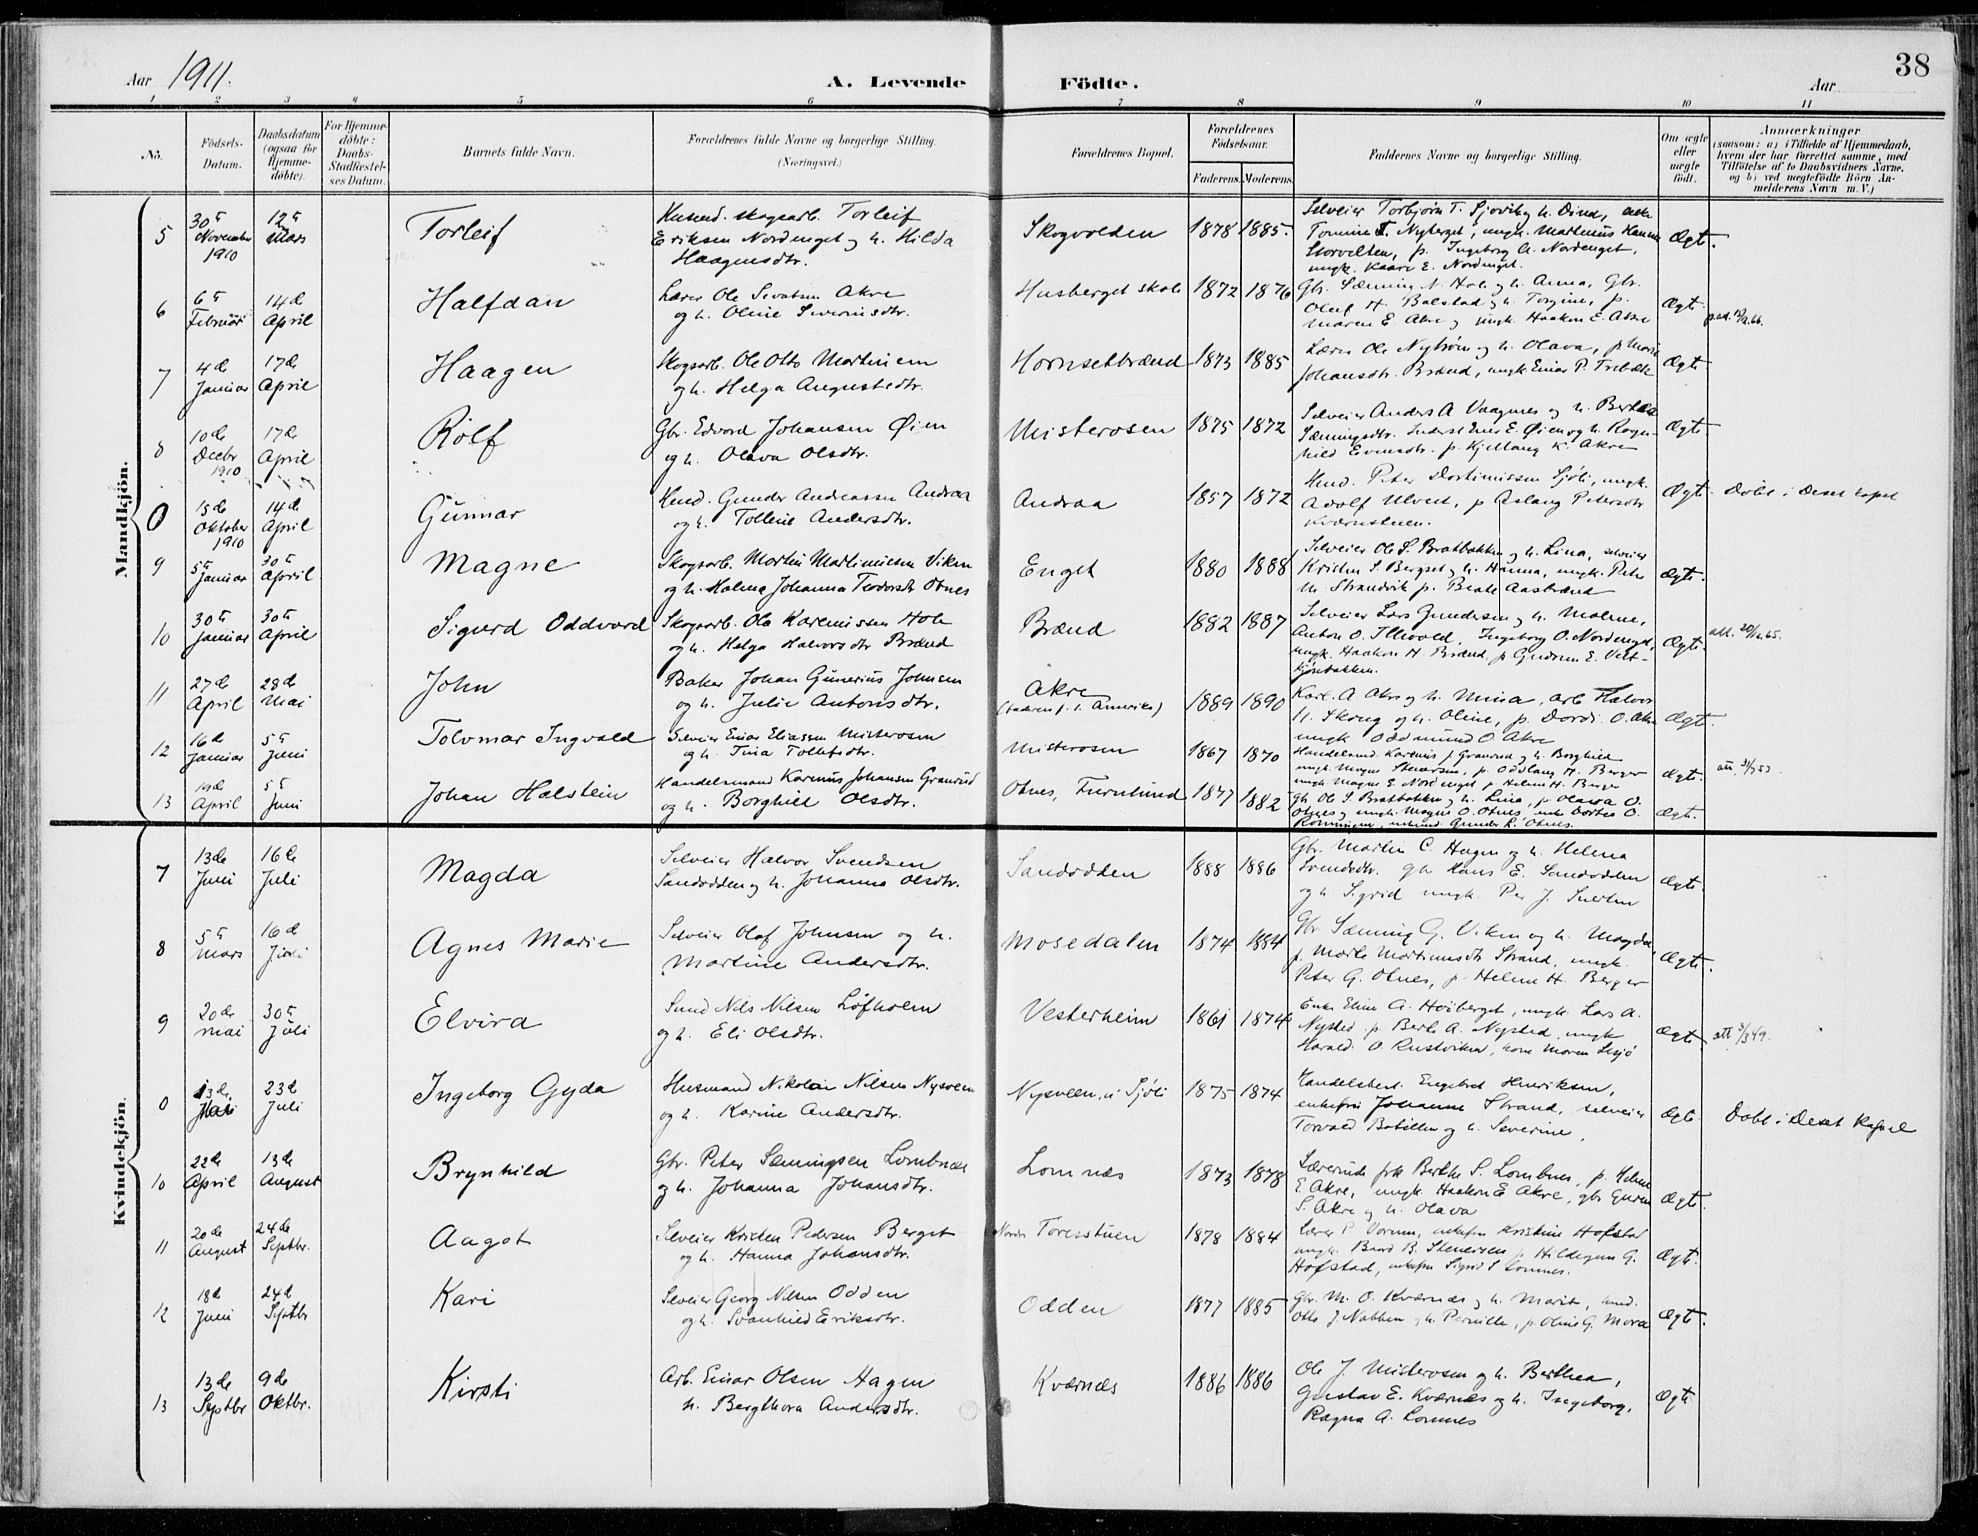 38
Aar 1911.
A. Levende Födte.
Aar
1 2 3 4 5 6 7 8 9 10 11
No.
Födsels-Datum.
Daabsdatum (ogsaa for Hjemme-døbte).
For Hjemme-døbte: Daabs-Stadfæstel-ses Datum.
Barnets fulde Navn.
Forældrenes fulde Navne og borgerlige Stilling. (Næringsvei.)
Forældrenes Bopæl.
Forældrenes Fødselsaar.
Faderens. Moderens.
Faddernes Navne og borgerlige Stilling.
Om ægte eller uægte født.
Anmærkninger
(saasom: a) i Tilfælde af Hjemmedaab,
hvem der har forrettet samme, med
Tilføielse af to Daabsvidners Navne,
og b) ved uægtefødte Börn An-
melderens Navn m. V.)
Mandkjön.
5 30te November 1910 12te Mars Torleif
Torleif
Eriksen Nordenget og h. Hilda
Haagensdtr.
Skogvolden 1878 1885. Selveier Torbjørn T. Sjøvik og h.
Ingeborg A. Nordenget,
ungk. Kaare E. Nordenget.
Ægt.
6 6te Februar 14de April Halfdan
Lærer Ole Akre
og h. Oline Severinsdtr.
Husberget skole 1872 1876 Gbr. Sæming N. Hole og h. Anna, Gbr.
Oluf H. Bolstad og h. Torgine, p.
Maren E. Akre og ungk. Haakon E. Akre
Ægt.
7 4de Januar 17de April Haagen
Skogsarb. Ole Otto Martinsen
og h. Helga Augustedtr.
Hornsetbrænd 1873 1885 Lærer Ole Nytrøen og h. Olava, p. Marie
Johansdtr. Brænd, ungk. Einar P. Trebæk
Ægt.
8 10de Decbr 1910 17de April Rolf
Gbr. Edvard Johansen Øien
og h. Olava Olsdtr.
Misterosen 1875 1872 Selveier Anders A. Vaagnes og h. Berthe
Sæmingsdtr. Inderst Einar E. Øien og h. Ragn-
hild Evensdtr. p. Kjellaug K. Akre
Ægt.
0 15de Oktober 1910 14de April Gunnar
Gunder Andreassen Andraa
og h. Tolline Andersdtr.
Andraa 1857 1872 Peter Sjøli, ungk.
Adolf Ulvest, p. Aslaug Petersdtr
Kværnstuen.
Ægt. Døbt i Deset kapel
9 5te Januar 30te April Magne
Skogsarb. Martin Martinusen Viken
og h. Halma Johanna Teodorsdtr Otnes
Enget 1880 1888 Selveier Ole S. Bratbakken og h. Lina, selveier
Kristen S. Berget og h. Hanna, ungk. Peter
M. Strandvik p. Beate Aasbrænd
Ægt.
10 30te Januar 30te April Sigurd Oddvard
Skogsarb. Ole Karenissen Hole
og h. Helga Halvorsdtr Brænd
Brænd 1882 1887 Selveier Lars Gundersen og h. Malene,
Anton O. Illevold, Ingeborg O. Nordenget,
ungk. Haakon H. Brænd, p. Gudrun E. Vest-
Ægt.
11 27de April 28de Mai John
Baker Johan Gunerius Johnsen
og h. Julie Antonsdtr.
Akre
(faderen p. t. Amerika)
1889 1890 Karl A. Akre og h. Mina, arb. Halvor
H. Skoug og h. Oline, p. Dordi O. Akre
ungk. Oddmund O. Akre
Ægt.
12 16de Januar 5te Juni Tolvmar Ingvald
Selveier Einar Eliassen Misterosen
og h. Tina Tollefsdtr.
Misterosen 1867 1870 Handelsmd. Karenius J. Granrud og h. Borghild
ungk. Magne Stenersen, p. Oddlaug H. Berger
ungk. Magne E. Nordenget p. Helene H. Berger
Ægt.
13 19de April 5te Juni Johan Halstein
Handelsmand Karenius Johansen Granrud
og h. Borghild Olsdtr.
Otnes, Furulund 1877 1882 Gbr. Ole S. Bratbakken og h. Lina, p. Olava O.
Otnes og ungk. Magne O. Otnes, enke Dortea O.
Rønningen, enkemd. Gunder L. Otnes.
Ægt.
Kvindekjön.
7 13de Juni 16de Juli Magda
Selveier Halvor Svendsen
Sandodden og h. Johanna Olsdtr.
Sandodden 1888 1886 Gbr. Martin C. Hagen og h. Helena
Svendsdtr. gbr Hans E. Sandodden
og h. Sigrid ungk. Per J.
Ægt.
8 5te Mars 16de Juli Agnes Marie
Selveier Olaf Johnsen og h.
Martine Andersdtr.
Mosedalen 1874 1884 Gbr. Sæming G. Viken og h. Magda
p. Marte Martinusdtr Strand, ungk.
Peter G. Otnes, p. Helene H. Berger
Ægt.
9 20de Mai 30te Juli Elvira
Smed Nils Nilsen Løfholm
og h. Eli Olsdtr.
Vesterheim 1861 1874 Enke Eline A. Høiberget, ungk. Lars A.
Nysted p. Berte A. Nysted, ungk
Harald O. Rustviken, kone Maren Sesjø
Ægt. att 3/3 49.
0 13de Mai 23de Juli Ingeborg Gyda
Husmand Nikolai Nilsen Nysveen
og h. Karine Andersdtr.
Nysveen, i Sjøli 1875 1874 Handelsbest. Engebret Henriksen,
enkefru Johanne Strand, selveier
Torvald Botillen og h. Severine.
Ægt. Døbt i Deset Kapel
10 22de April 13de August Brynhild
Gbr. Peter Sæmingsen Lombnæs
og h. Johanna Johansdtr.
Lomnæs 1873 1878 Lærerinde frk. Berthe S. Lombnæs, p. Helene
E. Akre, ungk. Haakon E. Akre, gbr
S. Akre og h. Olava
Ægt.
11 20de August 24de Septbr. Aagot
Selveier Kristen Pedersen Berget
og h. Hanna Johansdtr.
Nordre Toresstuen 1878 1884 Lærer P. Vorum, enkefru Kristine Hofstad
ungk. Bård B. Stenersen p. Hildegun G.
Hofstad, enkefru Sigrid S Lomnes.
Ægt.
12 18de Juni 24de Septbr Kari
Selveier Georg Nilsen Odden
og h. Svanhild Eriksdtr.
Odden 1877 1885 Gbr. M. O. Kværnæs og h. Marit,
Otto J. Nabben og h. Pernille, p. Oline G. Mora
Ægt.
13 13de Septbr 9de Oktbr. Kirsti
Arb. Einar Olsen Hagen
h. Bergthora Andersdtr.
Kværnæs 1886 1886 Ole J. Misterosen og h. Berthea,
Gustav E. Kværnæs og h. Ingeborg,
Ragna A. Lomnes
Ægt.